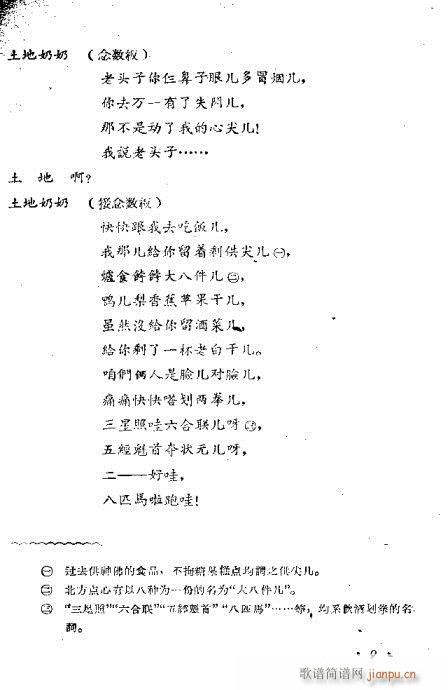 土地奶奶 （念数板）
老头子你仨鼻子眼儿多冒烟儿，
你去万一有了失闪儿，
那不是动了我的心尖儿！
我說老头子……
土 地 啊？
土地奶奶 （接念数板）
快快跟我去吃饭儿，
我那儿给你留着剩供尖儿㊀，
爐食餑餑大八件儿㊁，
鸭儿梨香蕉苹果干儿，
虽然没给你留酒菜儿，
给你剩了一杯老白干儿。
咱們俩人是臉儿对臉儿，
痛痛快快喒划两拳儿，
三星照哇六合联儿呀㊂，
五經魁首夺状元儿呀，
二——好哇，
八匹馬啦跑哇！
㊀ 过去供神佛的食品，不拘糖菓糕点均謂之供尖儿。
㊁ 北方点心有以八种为一份的名为“大八件儿”。
㊂ “三星照”“六合联”“五經魁首”“八匹馬”……等，均系飲酒划拳的名
詞。
歌谱简谱网
jianpu.cn